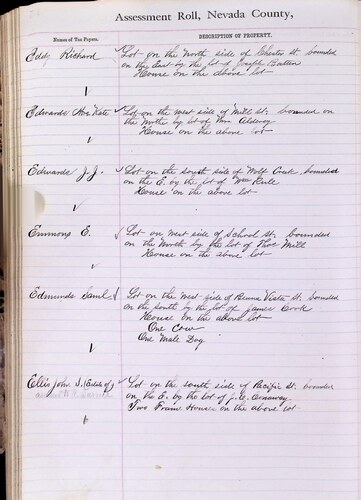 Assessment Roll, Nevada County,
Names of Tax Payers. DESCRIPTION OF PROPERTY.
Eddy Richard Lot on the North side of Chester St. bounded
on the East by the lot of Joseph Button
House on the above lot
Edwards Mrs Kate Lot on the west side of Mill St. bounded on
the North by lot of Wm
House on the above lot
Edwards J. J. Lot on the south side of Wolf Creek bounded
on the E. by the lot of Wm Rule
House on the above lot
Emmons E. Lot on West side of School St. bounded
on the North by the lot of Thos Mill
House on the above lot
Edmunds Saml Lot on the West side of Buena Vista St. bounded
on the south by the lot of James Cook
House on the above lot
One Cow
One Male Dog
Ellis John S. (Estate of) Lot on the south side of Pacific St. bounded
on the E. by the lot of J. C. Conaway
Two Frame Houses on the above lot